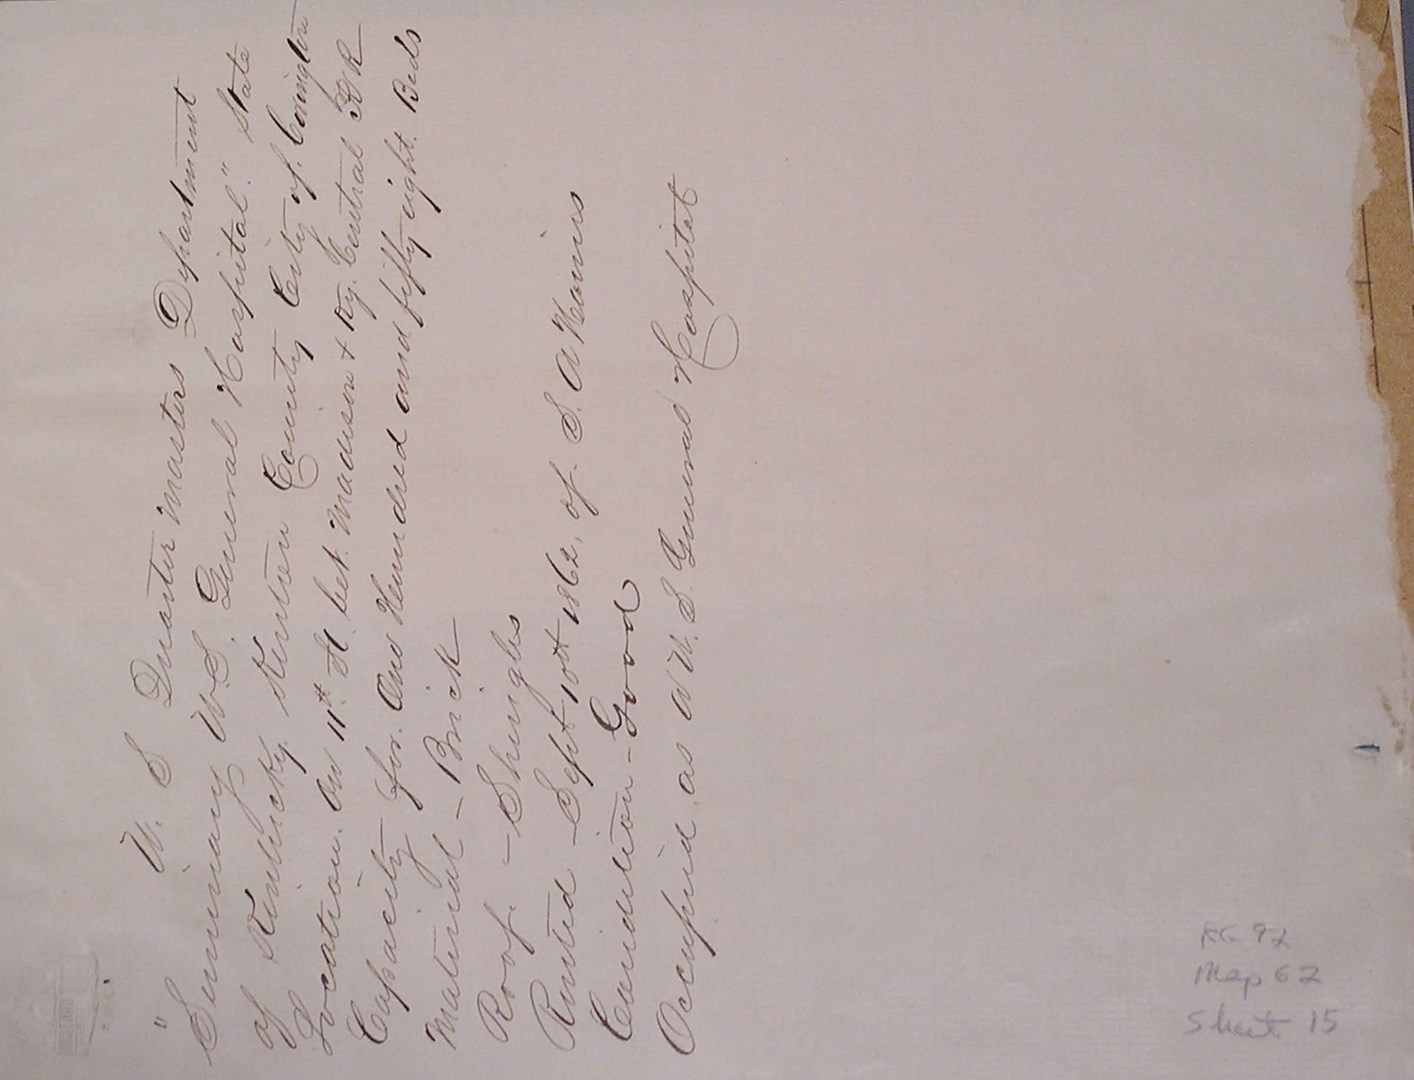 U. S Quarter Masters Department
"Seminary U.S. General Hospital." State
of Kentucky. Kenton County City of. Covington
Location. On 11th St. bet. Madison & Ky. Central RR
Capacity for. One Hundred and fifty eight. Beds
Material - Brick
Roof. - Shingles
Rented - Sept 10th 1862, of S. A Harris
Condition - Good
Occupied as A U. S. General Hospital
RG 92
Map 62
Sheet 15